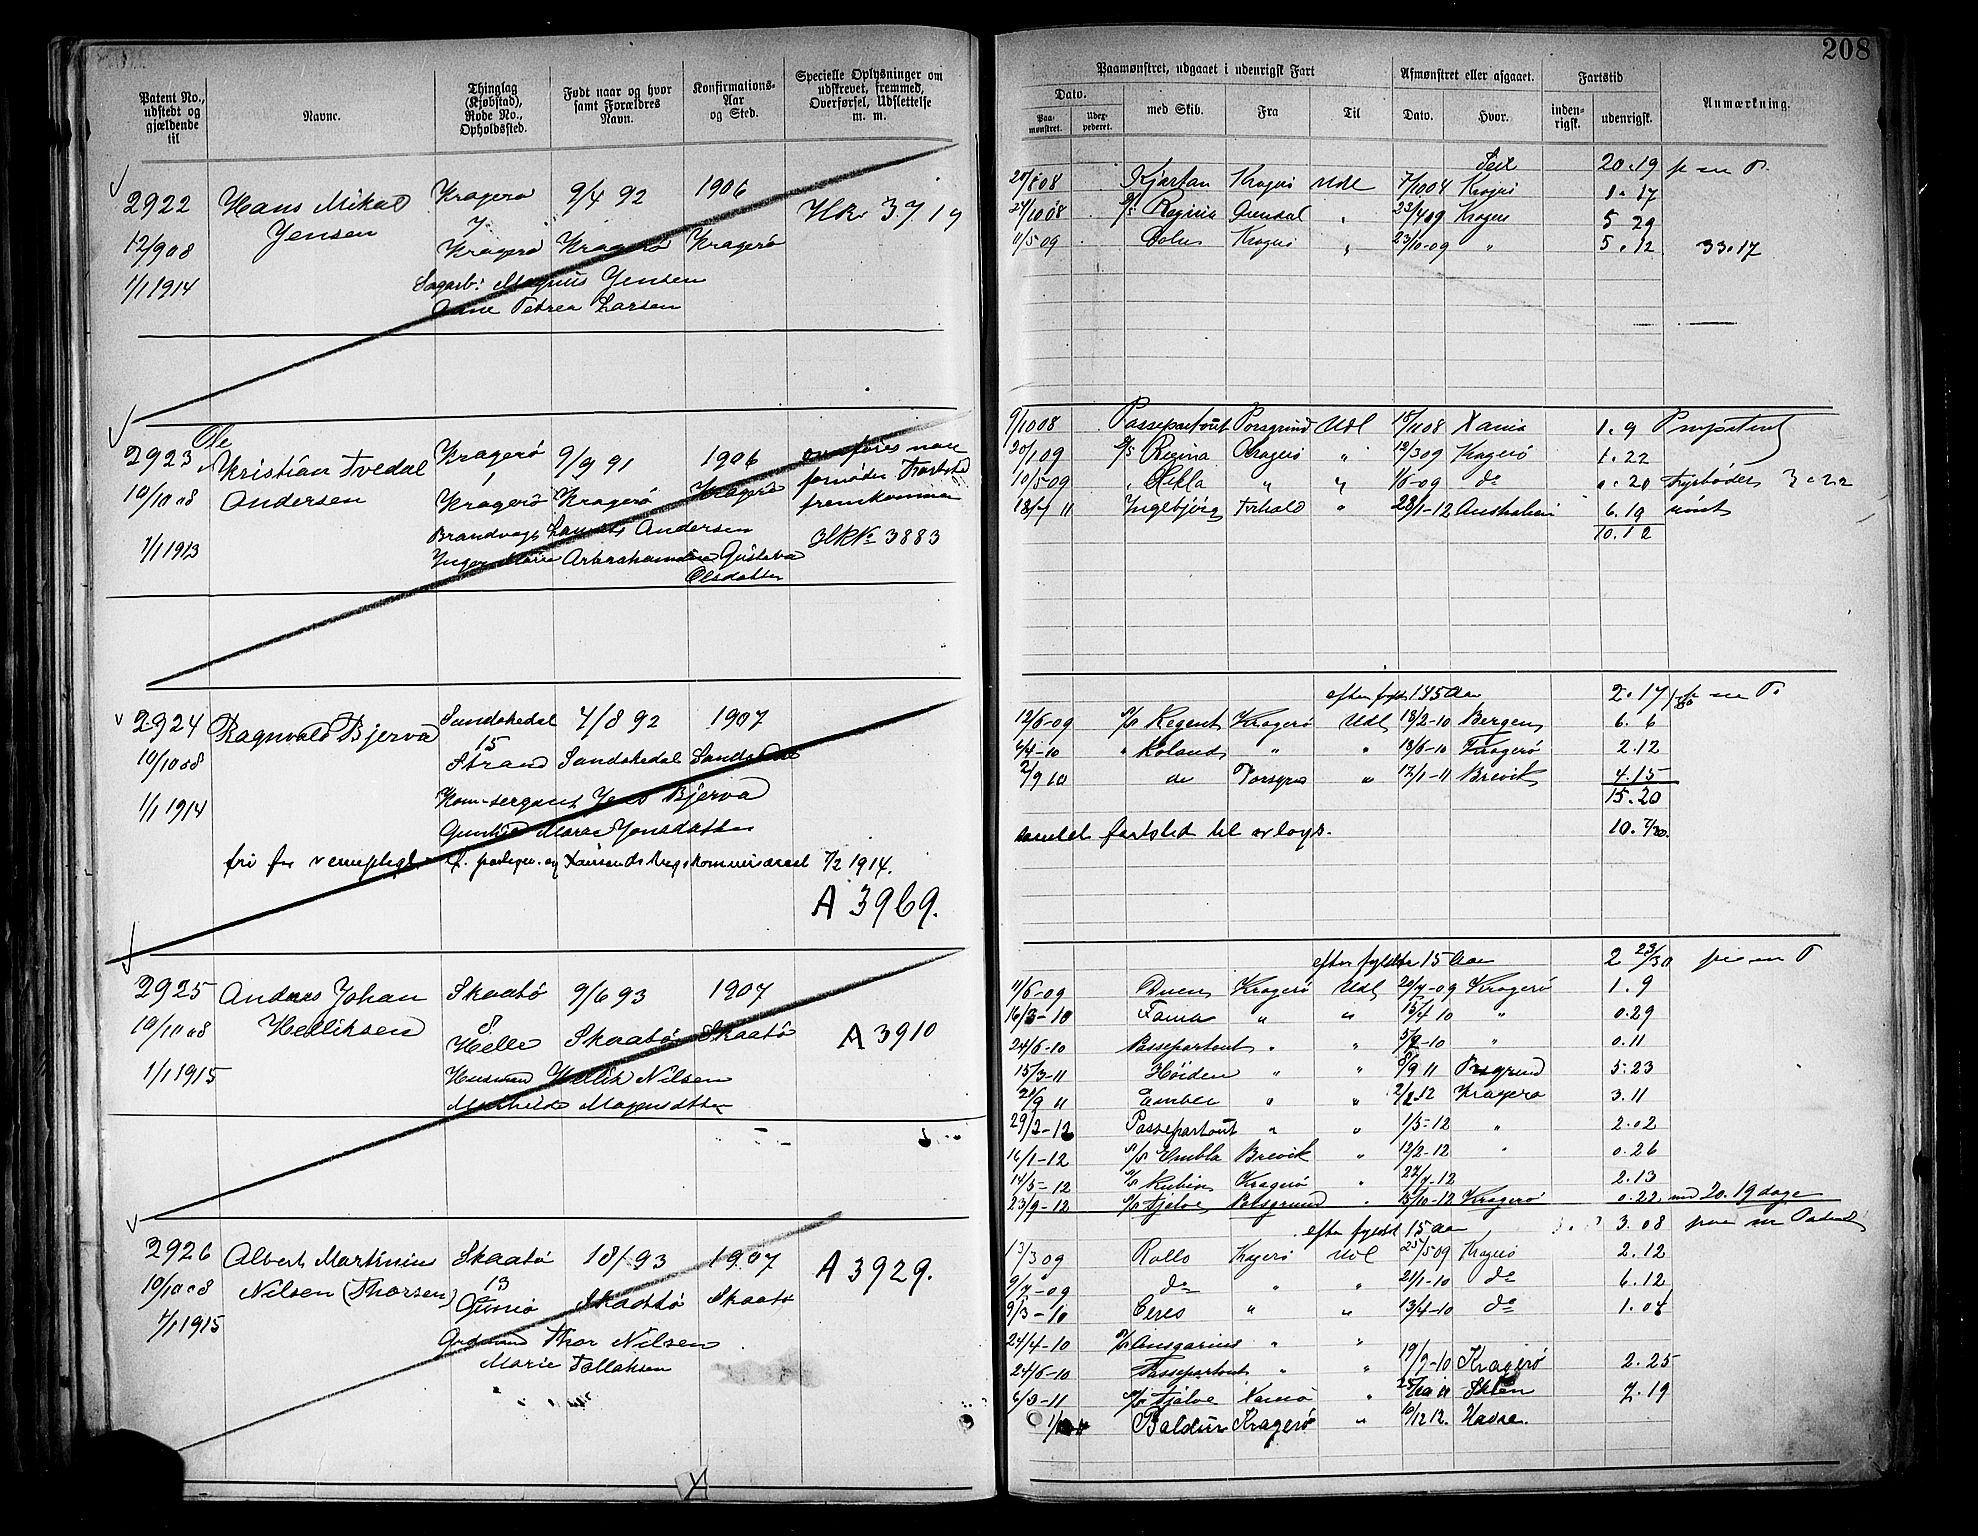 208
Patent No., udstedt og gjældende til
Navne.
Thinglag (Kjøbstad), Rode No., Opholdssted.
Født naar og hvor samt Forældres Navn.
Konfirmations-Aar og Sted.
Specielle Oplysninger om udskrevet, fremmed, Overførsel, Udslettelse m. m.
Paamønstret, udgaaet i udenrigsk Fart
Afmønstret eller afgaaet.
Fartstid
Anmærkning.
Dato.
Paa-mønstret.
Udex-pederet.
med Skib.
Fra
Til
Dato.
Hvor.
inden-rigsk.
udenrigsk.
2922 Hans Mikal Kragerø 9/4 92 1906
Jensen 7 HR. 3719
12/9 08 Kragerø Kragerø Kragerø
1/1 1914 Sagarb: Magnus Jensen
Anne Petrea Larsen
20.19
Kjartan Kragerø Udl 7/10 08 Kragerø 1.17
24/10 08 Regina Arendal " 23/4 09 Kragerø 5 29
11/5 09 Kragerø " 23/10-09 " 5.12 33.17
2923 Ole Kristian Tvedal Kragerø 9/9 91 1906
10/10 08 Andersen 1 Kragerø Kragerø Kragerø
fornøden Fartstid
fremkommer
1/1 1913 Andersen
HRN 3883
Gusteva
Olsdatter
9/10 08 Passepartout Porsgrund Udl 18/11 08 Xania 1.9
20/1 09 Regina Kragerø " 12/3 09 Kragerø 1.22
10/5-09 Hekla " " do 0.20 Fyrbøder 3.22
Ingebjørg " 28/1-12 6.19
10.12
2924 Ragnvald Bjerva Sandøkedal 4/8 92 1907
10/10 08 15 Strand Sandøkedal Sandøkedal
1/1 1914 Kom-sergant Jens Bjerva
Marie Jonsdatter
7/2 1914.
A 3969.
efter fyldt 15 Aar 2.17
12/6-09 Regent Kragerø Udl 18/2-10 Bergen 6.6
4/4-10 " Roland " " 18/6-10 Kragerø 2.12
2/9 10 do Porsgrd " 12/1-11 Brevik 4.15
15.20
fartstid til 10.7/30.
2925 Anders Johan Skaatø 9/6 93 1907
10/10 08 Helliksen 8 Helle Skaatø Skaatø A 3910
1/1 1915 Husmand Hellik Nilsen
Mathilde Mogensdtter
efter fyldte 15 Aar 2 23/30
11/6-09 Kragerø Udl 20/7-09 Kragerø 1.9
16/3-10 Fama " " 15/4 10 " 0.29
24/6-10 Passepartout " " 5/7-10 " 0.11
15/3-11 Høiden " " 8/9 11 Prsgrund 5.23
21/9 11 Ember " " 2/2 12 Kragerø 3.11
29/2-12 Passepartout " " 1/5-12 " 2.02
16/1-12 Embla Brevik " 12/2-12 " 0.26
14/5-12 Rubin Kragerø " 27/7-12 2.13
23/9-12 Fjalve Porsgrund " 15/10-12 Kragerø 0.22 20.19 dage
2926 Albert Martinius Skaatø 1907
10/10 08 Nilsen (Thorsen) 13 Gumø Skaatø Skaatø A 3929.
1/1 1915 Thor Nilsen
Marie Tallaksen
efter fyldt 15 Aar 3.08
13/3 09 Rollo Kragerø Udl 25/5 09 Kragerø 2.12
9/7-09 do " " 21/1-10 do 6.12
9/3-10 Ceres " " 13/4-10 do 1.04
24/4-10 Ansgarius " "
24/6-10 Passepartout " " 19/9-10 Kragerø 2.25
6/3-11 Fjalve " Skien 7.19
Baldur Kragerø " 10/12 12. Havre.